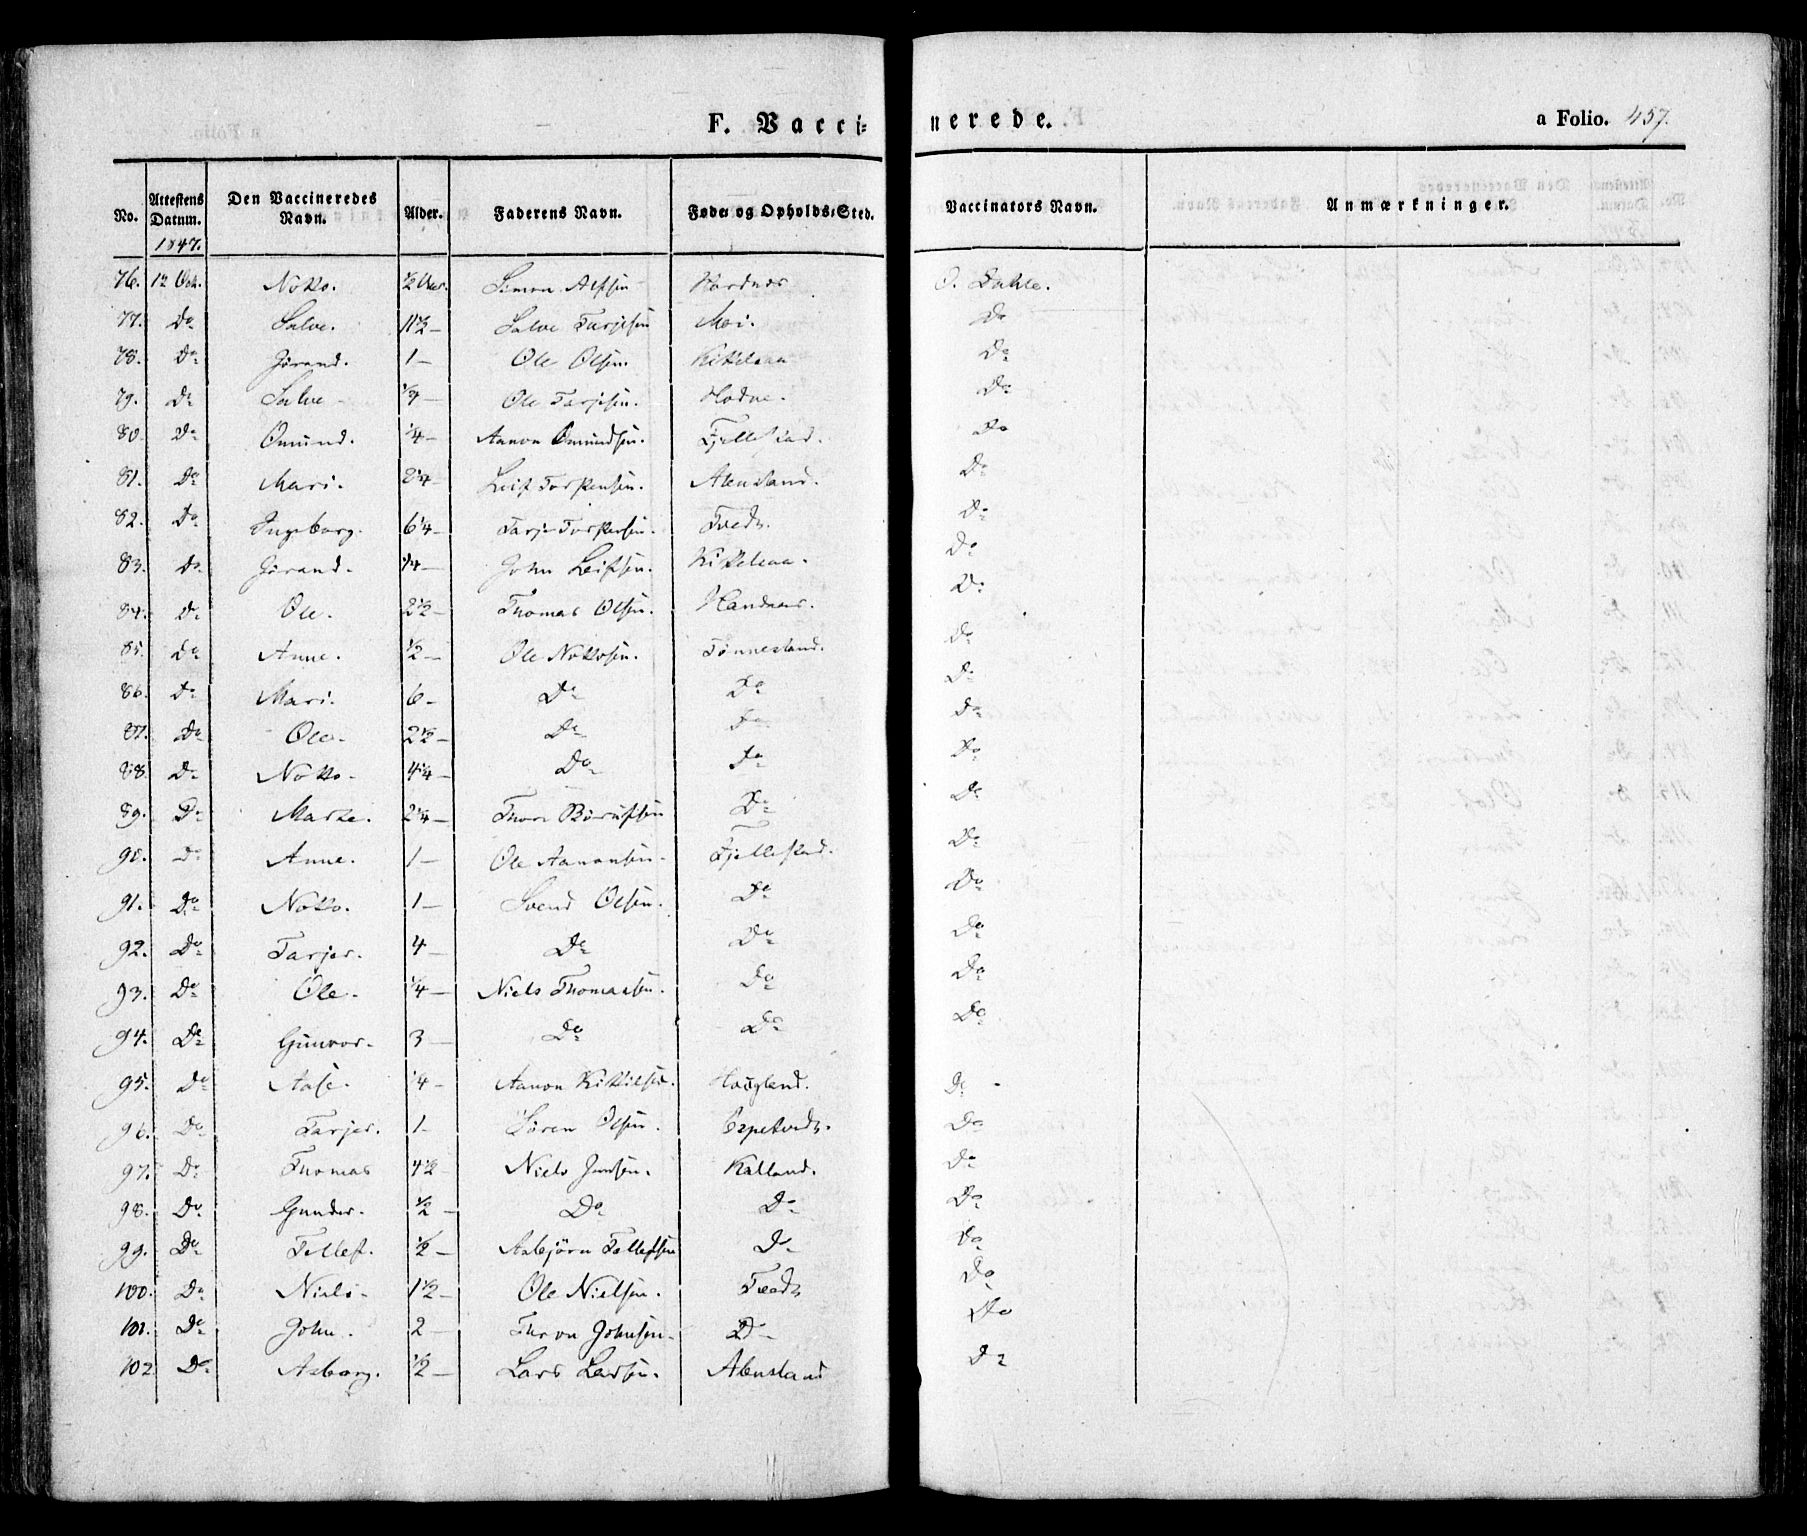 F. Vacci- nerede. a Folio. 457.
No. Attestens Datum. 1847. Den Vaccineredes Navn. Alder. Faderens Navn. Føde- og Opholds-Sted. Vaccinators Navn. Anmærkninger.
76. 12 Oct. Nötto. 1/2 Aar. Simon Alfsen O. Dahle.
77. Do Salve. 11 1/2 — Salve Tarjesen Moi. Do
78. Do Jörand. 1 — Ole Olsen. Kittelsaa Do
79. Do Salve 1/4 — Ole Tarjesen. Hodne. Do
80. Do Omund. 1/4 — Aanon Omundsen. Fjellestad. Do
81. Do Mari. 2 1/4 — Leif Torkensen. Alensland. Do
82. Do Ingeborg. 6 1/4 — Tarje Torkersen. Tvedt. Do
83. Do Jörand. 1/4 — John Leifsen. Kittelsaa. Do
84. Do Ole. 2 1/2 — Thomas Olsen. Do
85. Do Anne. 1/2 — Ole Nottosen. Tönnesland. Do
86. Do Mari. 6 — Do Do Do
87. Do Ole. 2 1/2 — Do Do Do
88. Do Nötto. 4 1/4 — Do Do Do
89. Do Marte. 2 1/4 — Thore Börufsen Do Do
90. Do Anne. 1 — Ole Aanonsen. Fjellestad. Do
91. Do Notto. 1 — Svend Olsen. Do Do
92. Do Tarjer. 4 — Do Do Do
93. Do Ole. 1/4 — Niels Thomassen. Do Do
94. Do Gunvor. 3 — Do Do Do
95. Do Aase. 1/4 — Aanon Kittilsen. Hougland. Do
96. Do Tarjer. 1 — Sören Olsen. Espetvedt. Do
97. Do Thomas 4 1/2 — Niels Jensen. Kalland. Do
98. Do Gunder. 1/2 — Do Do Do
99. Do Tellef. 1/2 — Asbjörn Tellefsen Do Do
100. Do Niels. 1 1/2 — Ole Nielsen. Tvedt Do
101. Do John. 2 — Thron Johnsen. Do Do
102 Do Asborg. 1/2 — Lars Larsen. Alensland Do